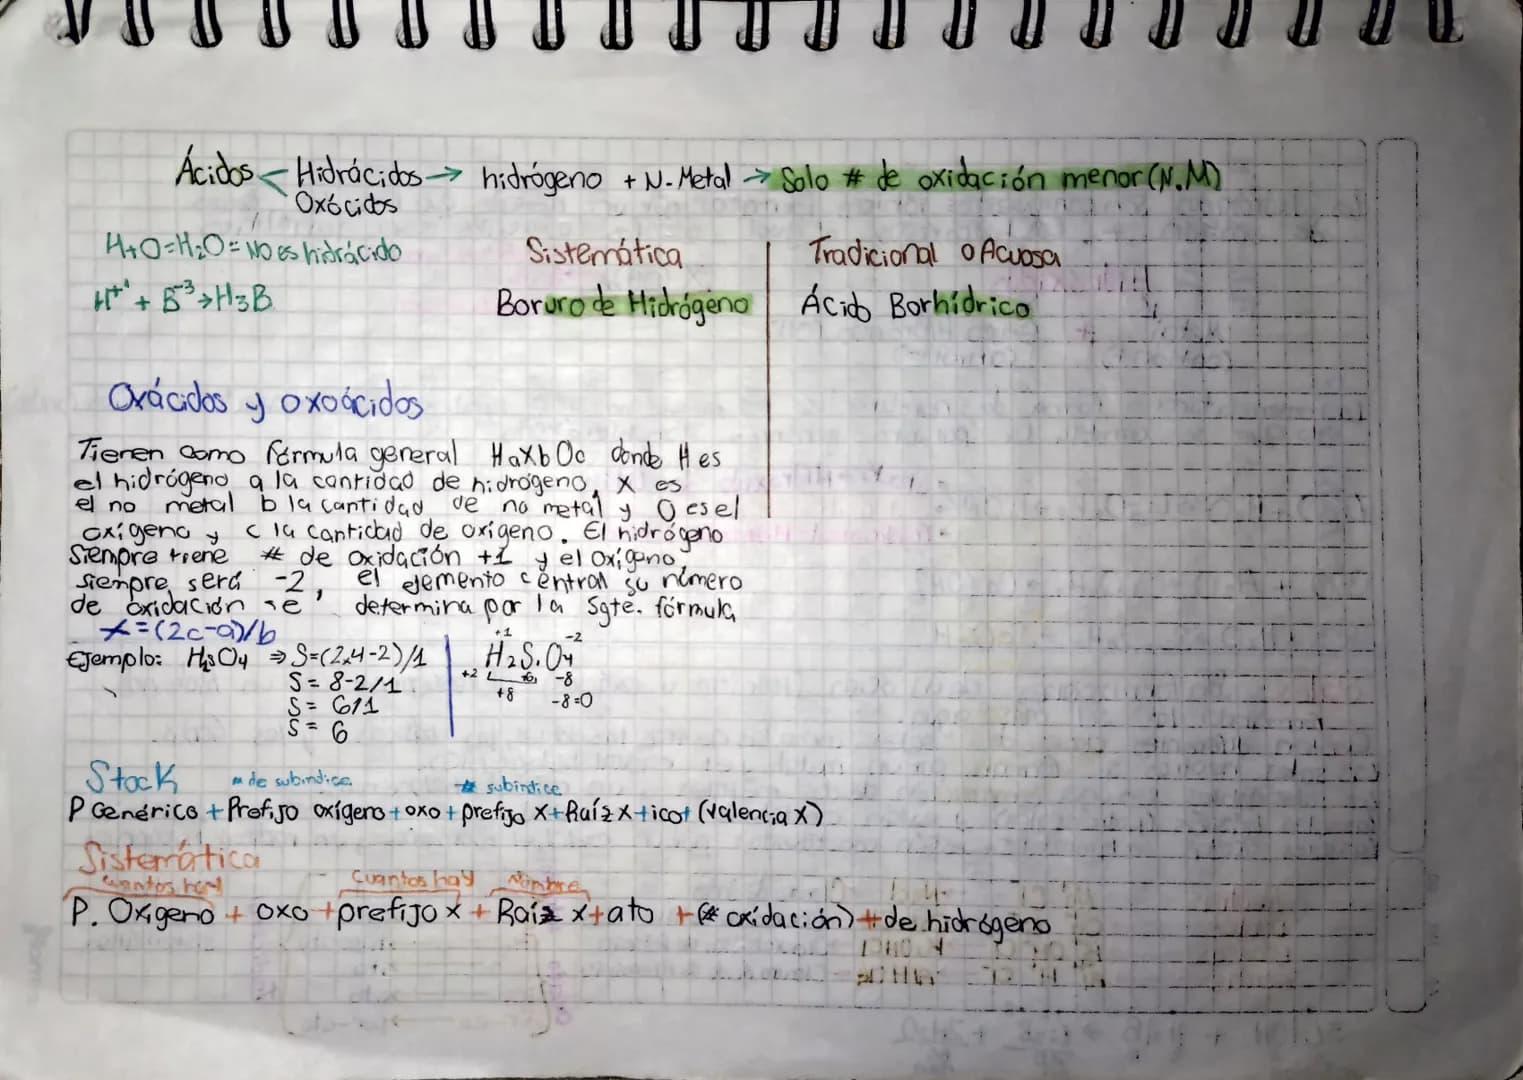 Ácidos < Hidrácidos → hidrógeno + N-Metal → Solo # de oxidación menor (N.M)
Oxócidos
H+O=H₂O= No es hidrácido
Sistemática
Tradicional o Acuosa
H⁺¹ + B⁻³ → H₃B
Boruro de Hidrógeno
Ácido Borhídrico
Oxácidos y oxoácidos
Tienen como fórmula general HaXbOc donde H es
el hidrógeno a la cantidad de hidrógeno, x es
el no metal b la cantidad de no metal y O es el
oxígeno y c la cantidad de oxígeno. El hidrógeno
Siempre tiene # de oxidación +1 y el oxígeno
siempre será -2, el elemento central su número
de oxidación se determina por la Sgte. fórmula
x=(2c-a)/b
Ejemplo: H₂SO₄ ⇒ S=(2x4-2)/1
S= 8-2/1
S= 6/1
S= 6
+1 -2
H₂S.O₄
+2 +6 -8
+8 -8=0
Stock
# de subindice
# subindice
P Genérico + Prefijo oxígeno + oxo + prefijo x + Raíz x + ico + (valencia x)
Sistemática
Cuantos hay
Cuantos hay
Nombre
P. Oxígeno + oxo + prefijo x + Raíz x + ato + (# oxidación) + de hidrógeno